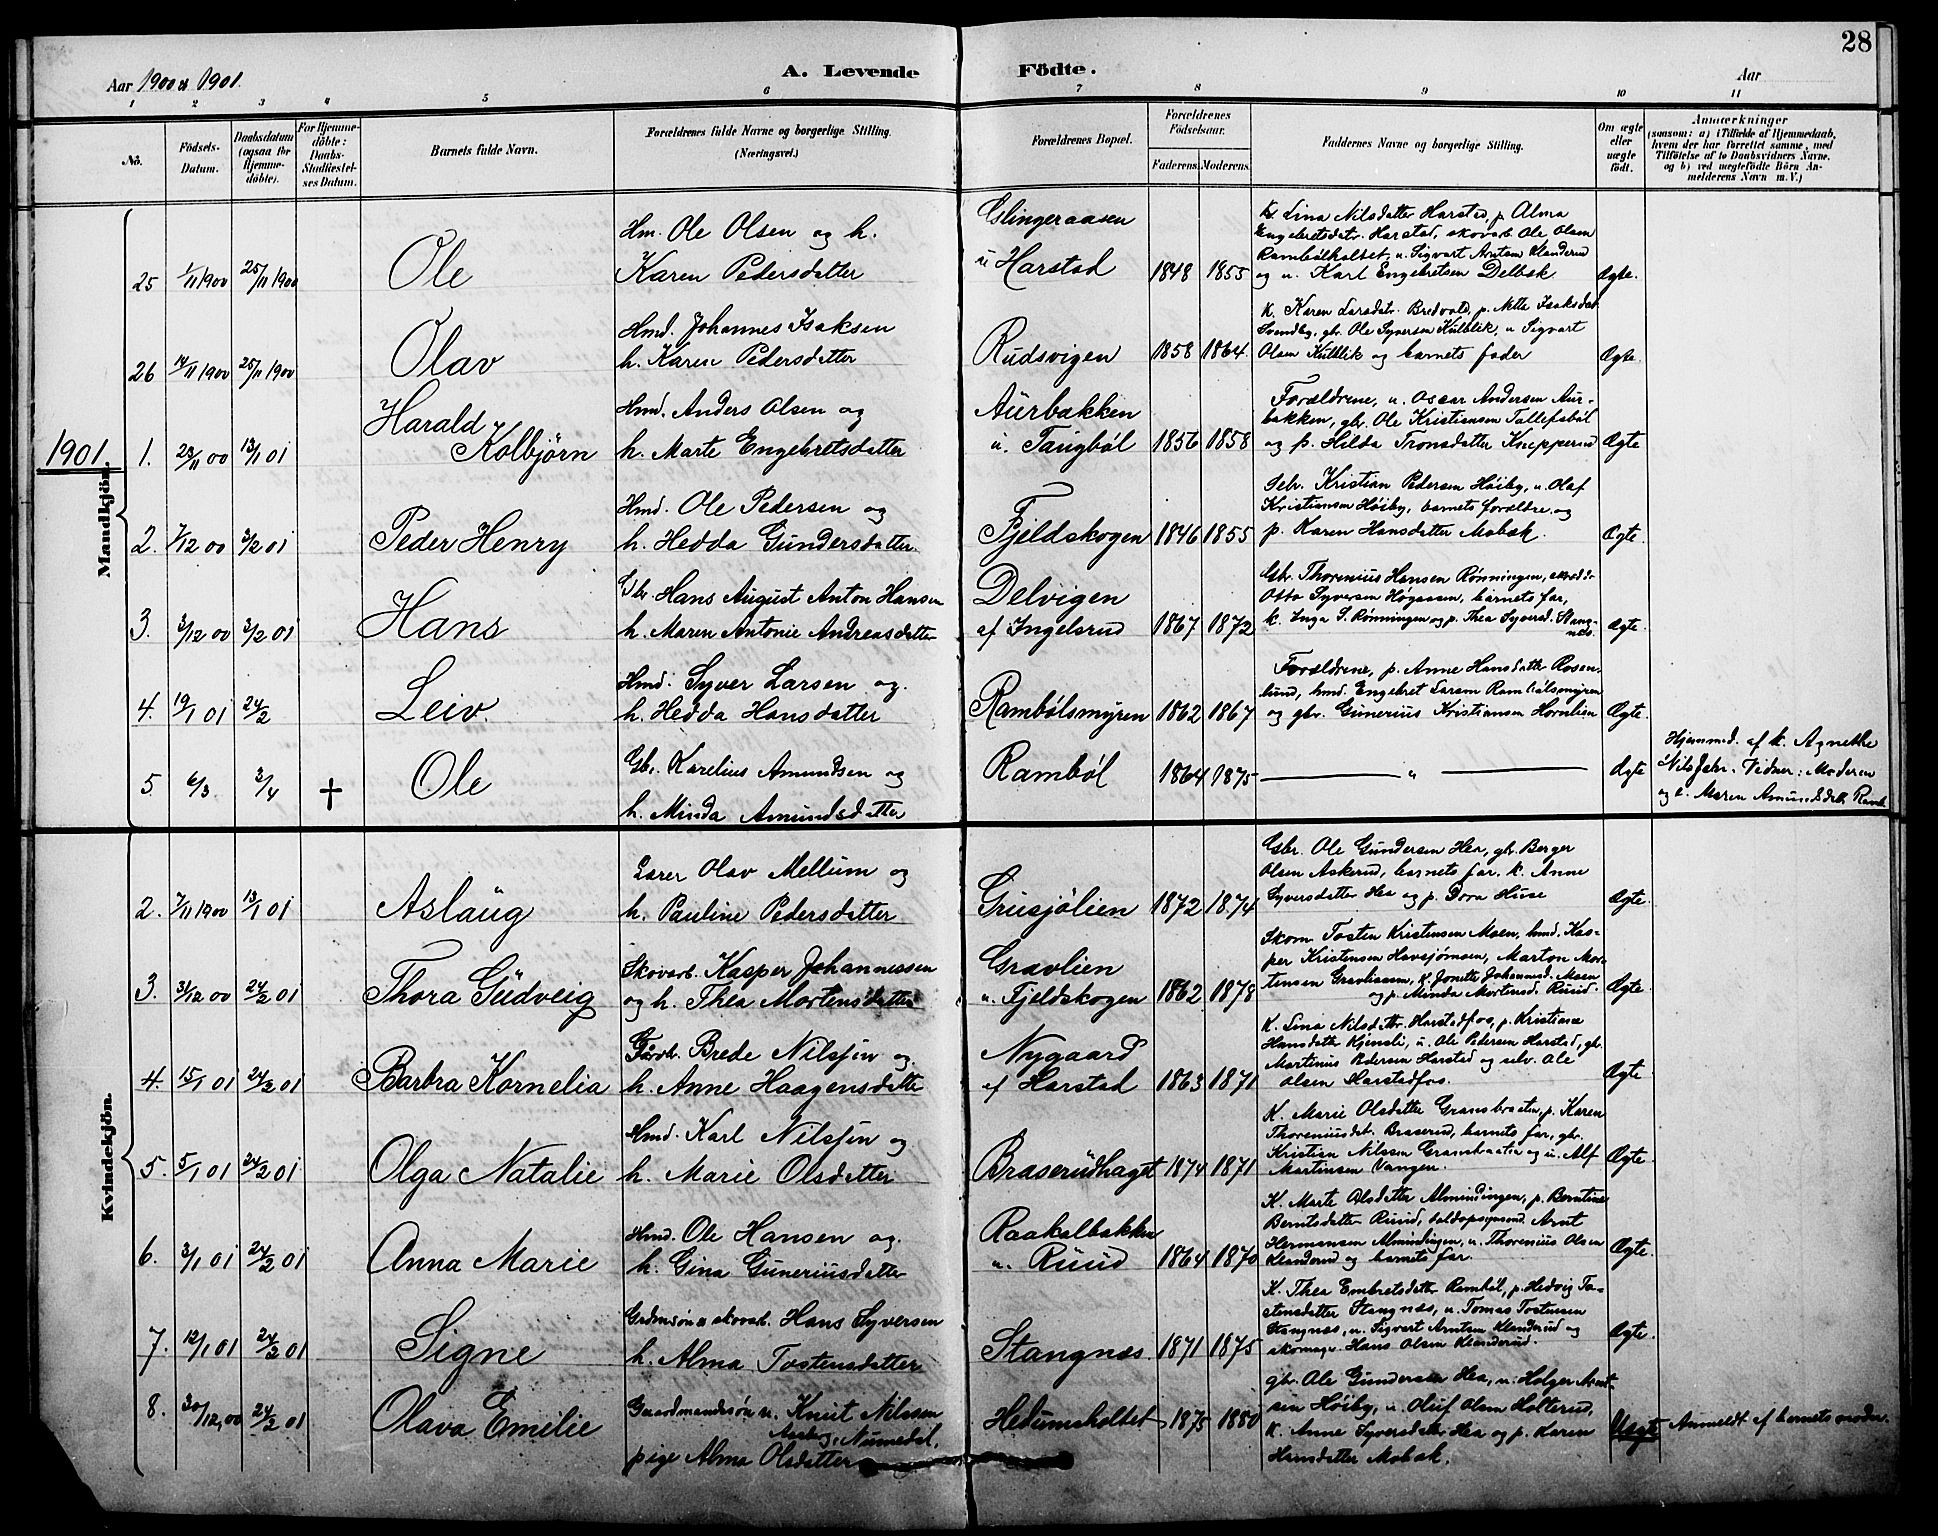 28
Aar 1900 & 1901.
A. Levende Födte.
Aar
1 2 3 4 5 6 7 8 9 10 11
No.
Födsels-
Datum.
Daabsdatum
(ogsaa for
Hjemme-
döbte).
For Hjemme-
döbte:
Daabs-
Stadfæstel-
ses Datum.
Barnets fulde Navn.
Forældrenes fulde Navne og borgerlige Stilling.
(Næringsvei.)
Forældrenes Bopæl.
Forældrenes
Födselsaar.
Faderens. Moderens.
Faddernes Navne og borgerlige Stilling.
Om ægte
eller
uægte
födt.
Anmærkninger
(saasom: a) i Tilfælde af Hjemmedaab,
hvem der har forrettet samme, med
Tilföielse af to Daabsvidners Navne,
og b) ved uægtefödte Börn An-
melderens Navn m. V.)
Mandkjön.
25 1/11 1900 25/11 1900 Ole
Hm. Ole Olsen og h.
Karen Pedersdatter
Glingeraasen
u Harstad 1848 1855
K. Lina Nilsdatter Harstad, p. Alma
Engebretsdatr. Harstad, skovarb Ole Olsen
Rambölholtet, u. Sigvart Arntsen Klanderud
og u. Karl Engebretsen Delbæk Ægte.
26 14/11 1900 25/11 1900 Olav
Hmd. Johannes Isaksen
h. Karen Pedersdatter
Rudsvigen 1858 1864.
K. Karen Larsdatr. Bredvold, p. Mette Isaksdat
Svendby, gbr. Ole Syversen Kulblik, u Sigvart
Olsen Kulblik og barnets fader Ægte.
1901.
1. 23/11 00 13/1 01 Harald
Kolbjörn
Hmd. Anders Olsen og
h. Marte Engebretsdatter
Aurbakken
u. Taugböl 1856 1858
Forældrene, u. Oscar Andersen Aur-
bakken, gbr. Ole Kristiansen Tollefsböl
og p. Hilda Tronsdatter Knepperud Ægte
2. 7/12 00 3/2 01 Peder Henry
Hmd. Ole Pedersen og
h. Hedda Gundersdatter.
Fjeldskogen 1846 1855
Gbr. Kristian Pedersen Höiby, u. Olaf
Kristiansen Höiby, barnets forældre og
p. Karen Hansdatter Mobæk. Ægte.
3. 3/12 00 3/2 01 Hans
Gbr. Hans August Anton Hansen
h. Maren Antonie Andreasdatter
Delvigen
af Ingelsrud 1867 1872
Gbr. Thorenius Hansen Rönningen,
Otto Syversen Högaasen, barnets far,
k. Inga S. Rönningen og p. Thea Syversd. Stang-
næs. Ægte
4. 19/1 01 24/2 Leiv.
Hmd. Syver Larsen og.
h. Hedda Hansdatter
Rambölsmyren 1862 1867
Forældrene, p. Anne Hansdatter Rosen-
lund, hmd. Engebret Larsen Rambölsmyren
og gbr. Gunerius Kristiansen Hornlien Ægte.
5. 6/3 3/4 † Ole
Gb. Karelius Amundsen og
h. Minda Amundsdatter
Ramböl 1864 1875 — „ — Ægte
Hjemmed. af k. Agnethe
Nilsdatr. Vidner: Moderen
og Maren Amundsdatr. Ramb
Kvindekjön.
2. 7/11 1900 13/1 01 Aslaug
Lærer Olav Mellum og
h. Pauline Pedersdatter
Grusjölien 1872 1874
Gbr. Ole Gundersen Hea, gbr. Berger
Olsen Askerud, barnets far. k. Anne
Syversdatter Hea og p. Dora Huse Ægte.
3. 3/12 00 24/2 01 Thora Gudveig
Skovarb. Kasper Johannessen
og h. Thea Mortensdatter
Gravlien
u. Fjeldskogen 1862 1878
Skom. Tosten Kristensen Moen, hmd. Kas-
per Kristensen Havsjömoen, Marton Mor-
tensen Gravliaasen, k. Jonette Johannesd. Moen
og p. Minda Mortensd. Ruud. Ægte.
4. 15/1 01 24/2 01 Barbra Kornelia
Gårdb. Brede Nilssen og.
h. Anne Haagensdatter
Nygaard
af Harstad 1863 1871
K. Lina Nilsdatr. Harstadfos, p. Kristiane
Hansdatter Kjensli, u. Ole Pedersen Harstad, gb.
Martinus Pedersen Harstad og selv. Ole
Olsen Harstadfos. Ægte
5. 5/1 01 24/2 01 Olga Natalie
Hmd. Karl Nilssen og
h. Marie Olsdatter
Braserudhaget 1874 1871
K. Marie Olsdatter Gransbraaten, p. Karen
Thoreniusdat. Braserud, barnets far, gbr.
Kristian Nilssen Gransbraaten og u. Alf
Martinsen Vangen. Ægte.
6. 3/1 01 24/2 01 Anna Marie
Hmd. Ole Hansen og.
h. Gina Guneriusdatter
Raakalbakken
u. Ruud 1864 1870
K. Marte Olsdatter Almindingen, p. Berntine
Berntsdatter Ruud, Arnt
Hermansen Almindingen, u. Thorenius Olsen
Klanderud og barnets far. Ægte.
7. 12/1 01 24/2 01 Signe
Gdmsön & skovarb. Hans Syversen
h. Alma Tostensdatter
Stangnæs. 1871 1875
K. Thea Embretsdatter Ramböl, p. Hedvig To-
stensdatter Stangnæs, u. Tomas Tostensen
Stangnæs, u. Sigvart Arntsen Klanderud og
skomag. Hans Olsen Klanderud. Ægte.
8. 30/12,00 24/2 01 Olava Emilie
Gaardmandssön u. Knut Nilssen
Aasberg, Numedal,
pige Alma Olsdatter
Hedumsholtet 1875 1880
gbr. Ole Gundersen Hea, u. Holger Arnt-
sen Höiby, u. Oluf Olsen Holterud,
K. Anne Syversdatter Hea og p. Karen
Hansdatter Mobæk. Uægte
Anmeldt af barnets moder.